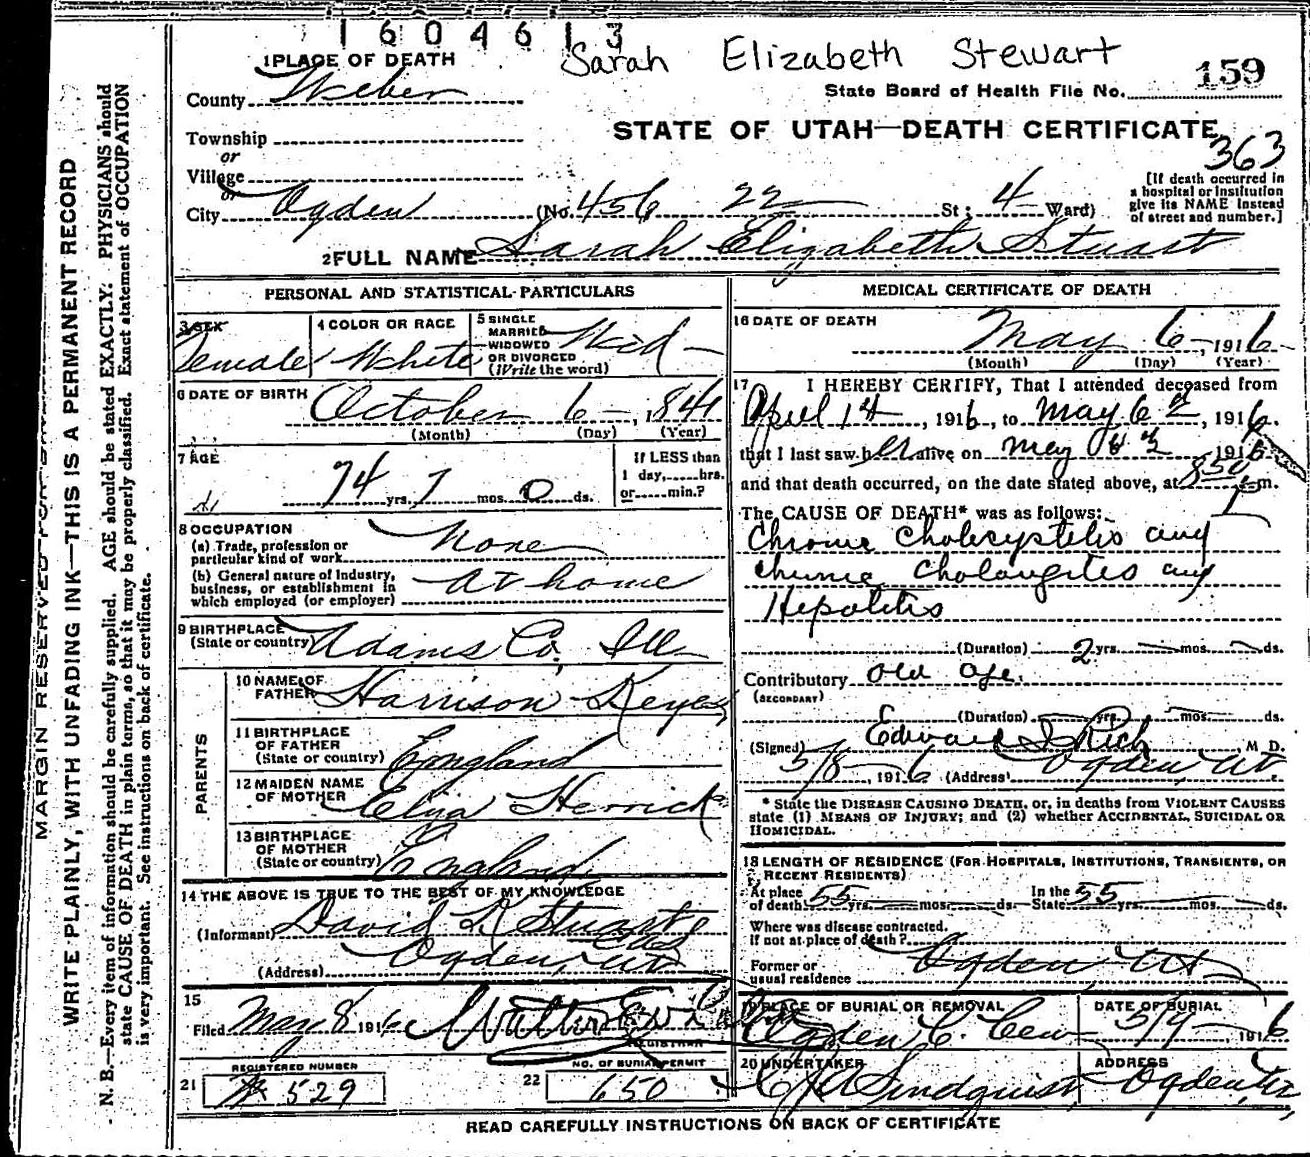 1604613
Sarah Elizabeth Stewart
1 PLACE OF DEATH
County Weber
State Board of Health File No. 159
STATE OF UTAH—DEATH CERTIFICATE
363
Township
or
Village
or
City Ogden (No. 456 22 St; 4 Ward)
[If death occurred in
a hospital or institution
give its NAME instead
of street and number.]
2 FULL NAME Sarah Elizabeth Stuart
PERSONAL AND STATISTICAL PARTICULARS
3 SEX
Female
4 COLOR OR RACE
White
5 SINGLE
MARRIED
WIDOWED
OR DIVORCED
(Write the word)
Wid
6 DATE OF BIRTH October 6, 1841
(Month) (Day) (Year)
7 AGE
74 yrs. 7 mos. 0 ds.
If LESS than
1 day,......hrs.
or......min.?
8 OCCUPATION
(a) Trade, profession or
particular kind of work None
(b) General nature of Industry,
business, or establishment in
which employed (or employer) at home
9 BIRTHPLACE
(State or country) Adams Co, Ill
PARENTS
10 NAME OF
FATHER Harrison Keyes
11 BIRTHPLACE
OF FATHER
(State or country) England
12 MAIDEN NAME
OF MOTHER Eliza Herrick
13 BIRTHPLACE
OF MOTHER
(State or country) England
14 THE ABOVE IS TRUE TO THE BEST OF MY KNOWLEDGE
(Informant) David L Stuart
(Address) Ogden, Ut
15
Filed May 8 1916 Walter E
REGISTRAR
REGISTERED NUMBER
21 529
NO. OF BURIAL PERMIT
22 650
MEDICAL CERTIFICATE OF DEATH
16 DATE OF DEATH
May 6, 1916
(Month) (Day) (Year)
17 I HEREBY CERTIFY, That I attended deceased from
April 14, 1916, to May 6, 1916.
that I last saw her alive on May 1916
and that death occurred, on the date stated above, at 850 m.
The CAUSE OF DEATH* was as follows:
Chronic Cholecystitis and
chronic Cholangites and
Hepatitis
(Duration) 2 yrs. mos. ds.
Contributory old age.
(SECONDARY)
(Duration) yrs. mos. ds.
(Signed) Edward I Rich, M. D.
5/8, 1916 (Address) Ogden Ut
* State the DISEASE CAUSING DEATH, or, in deaths from VIOLENT CAUSES
state (1) MEANS OF INJURY; and (2) whether ACCIDENTAL, SUICIDAL OR
HOMICIDAL.
18 LENGTH OF RESIDENCE (FOR HOSPITALS, INSTITUTIONS, TRANSIENTS, OR
RECENT RESIDENTS)
At place
of death 55 yrs. mos. ds.
In the
State 55 yrs. mos. ds.
Where was disease contracted.
If not at place of death?
Former or
usual residence Ogden Ut
19 PLACE OF BURIAL OR REMOVAL
Ogden C. Cem
DATE OF BURIAL
5/9 1916
20 UNDERTAKER
Lindquist
ADDRESS
Ogden, Ut
READ CAREFULLY INSTRUCTIONS ON BACK OF CERTIFICATE
MARGIN RESERVED FOR
WRITE PLAINLY, WITH UNFADING INK—THIS IS A PERMANENT RECORD
N. B.—Every item of information should be carefully supplied. AGE should be stated EXACTLY. PHYSICIANS should
state CAUSE OF DEATH in plain terms, so that it may be properly classified. Exact statement of OCCUPATION
is very important. See instructions on back of certificate.